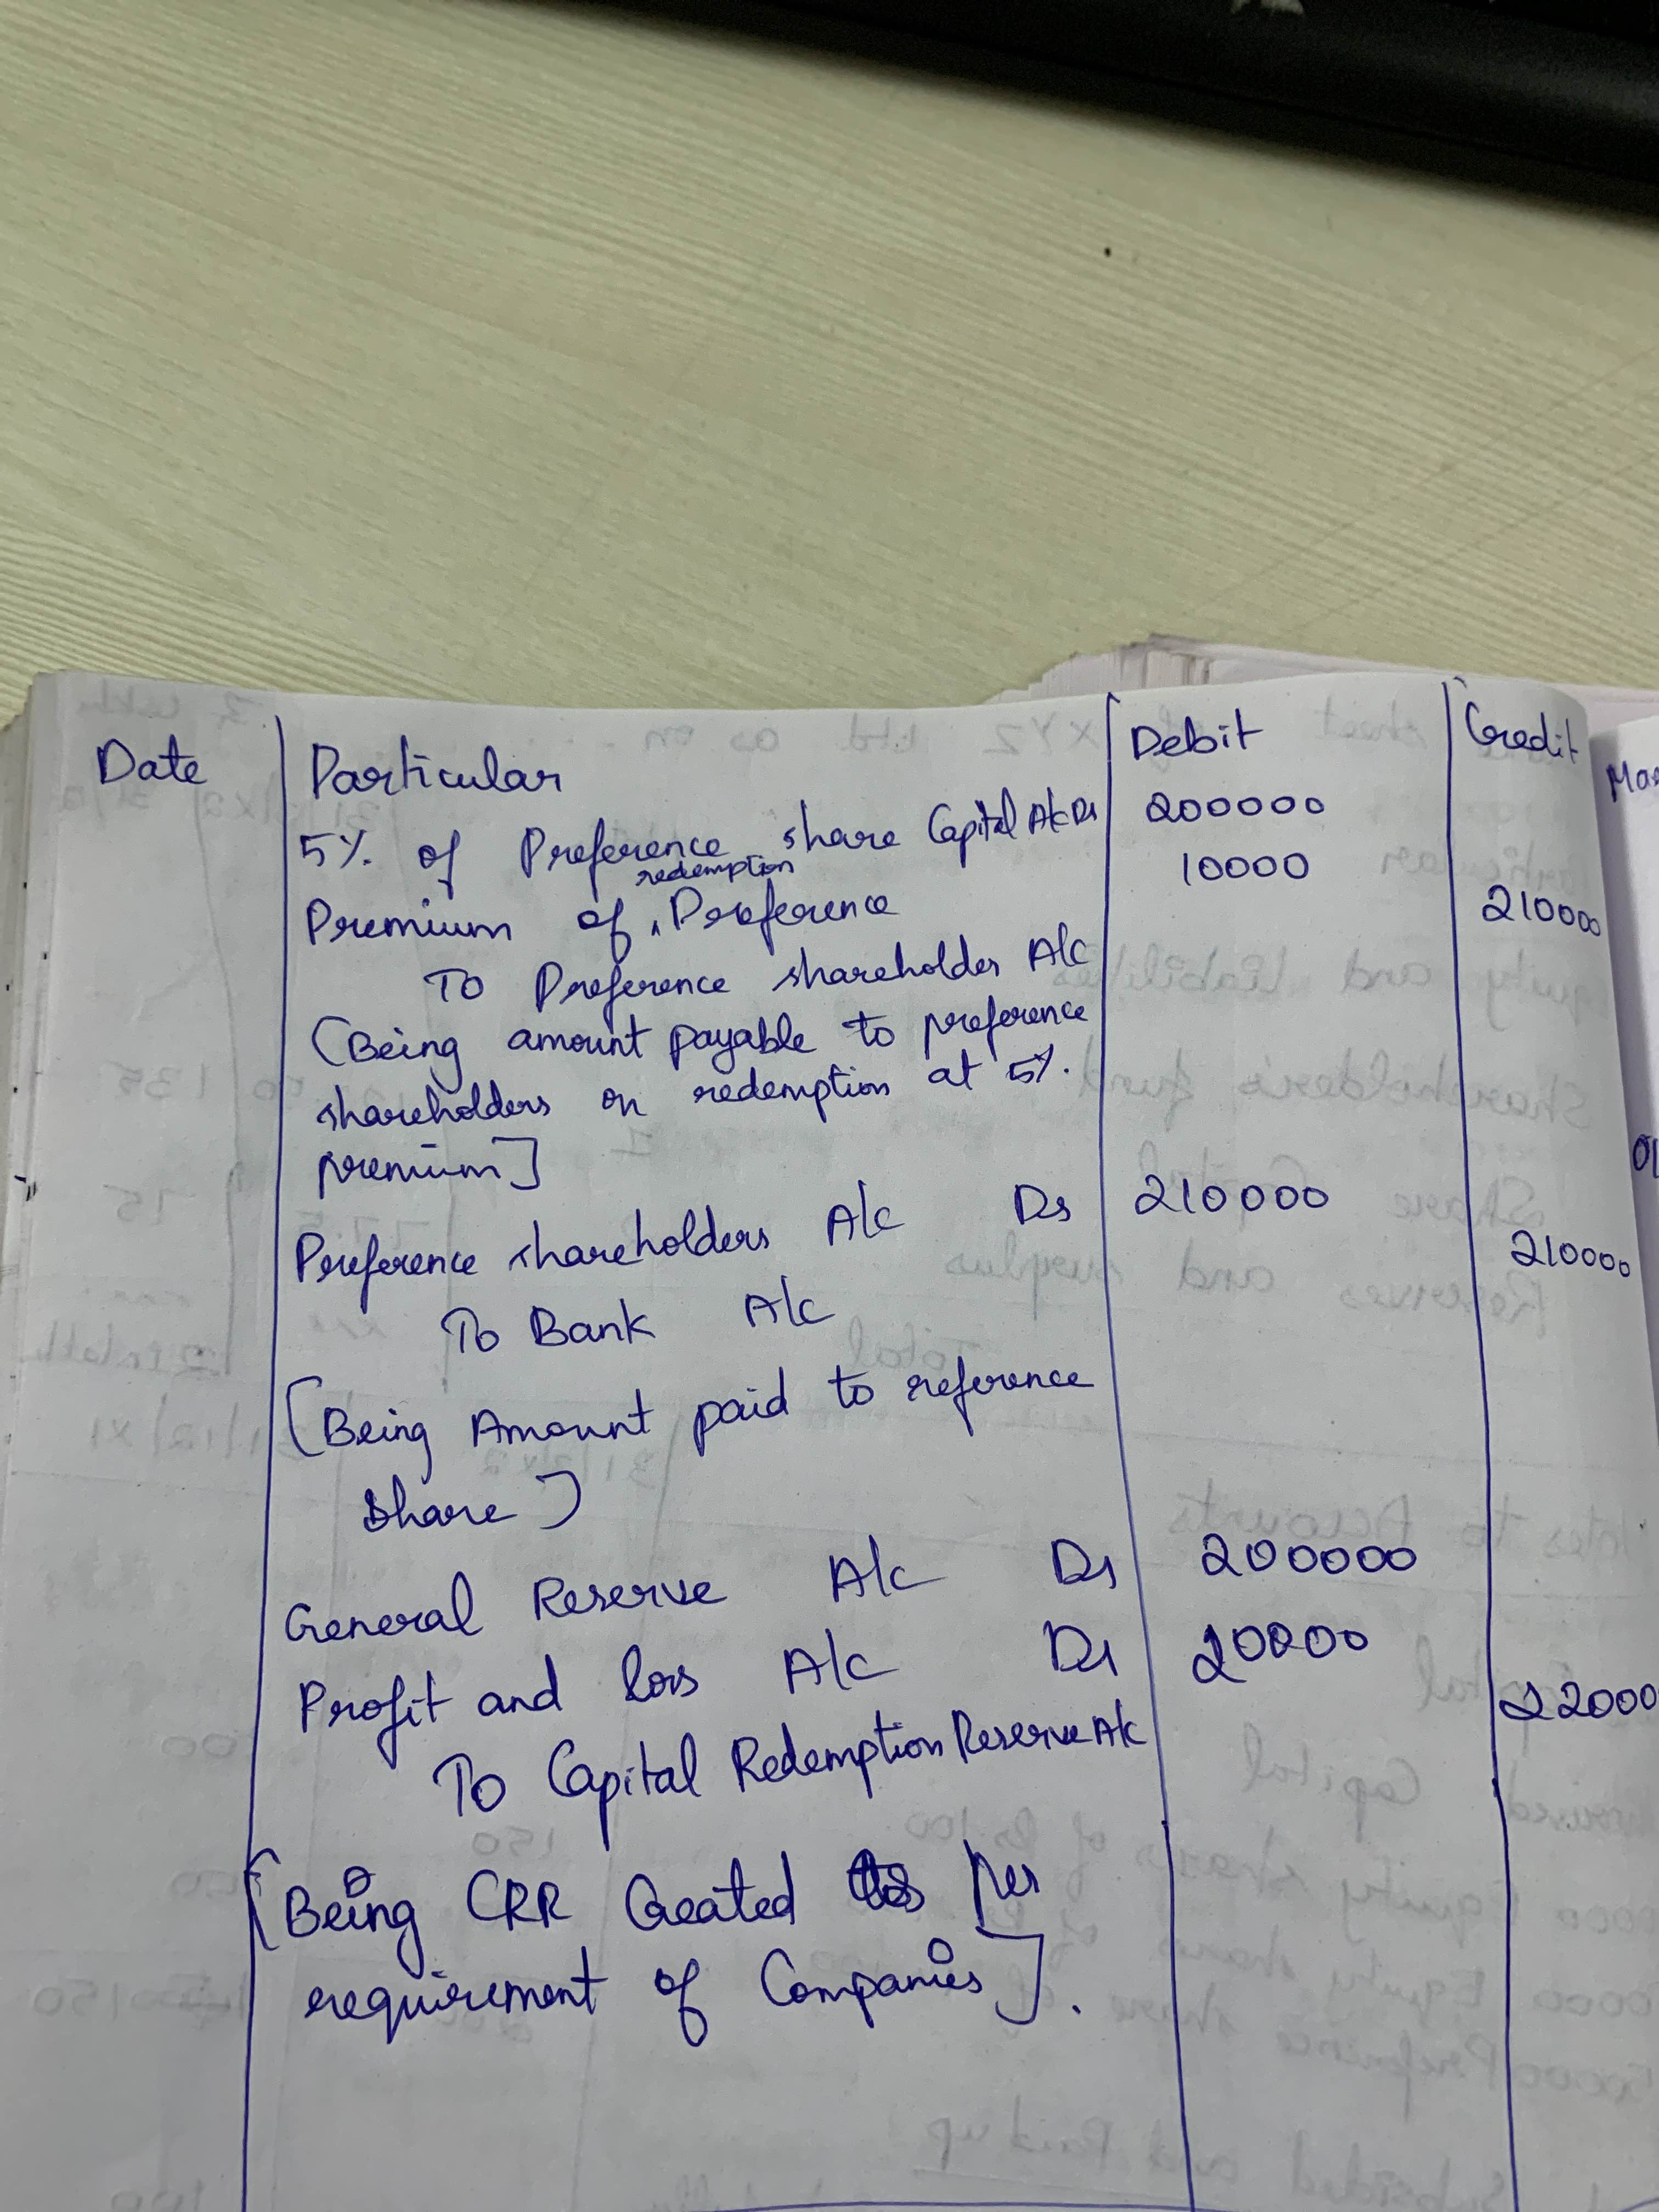 Date Particular Debit Credit
5% of Preference share Capital A/c Dr 200000
redemption
Premium of Preference 10000
To Preference shareholder A/c 210000
(Being amount payable to preference
shareholders on redemption at 5%.
premium]
Preference shareholders A/c Dr 210000
To Bank A/c 210000
(Being Amount paid to reference
share)
General Reserve A/c Dr 200000
Profit and loss A/c Dr 20000
To Capital Redemption Reserve A/c 22000
[Being CRR Created as per
requirement of Companies].